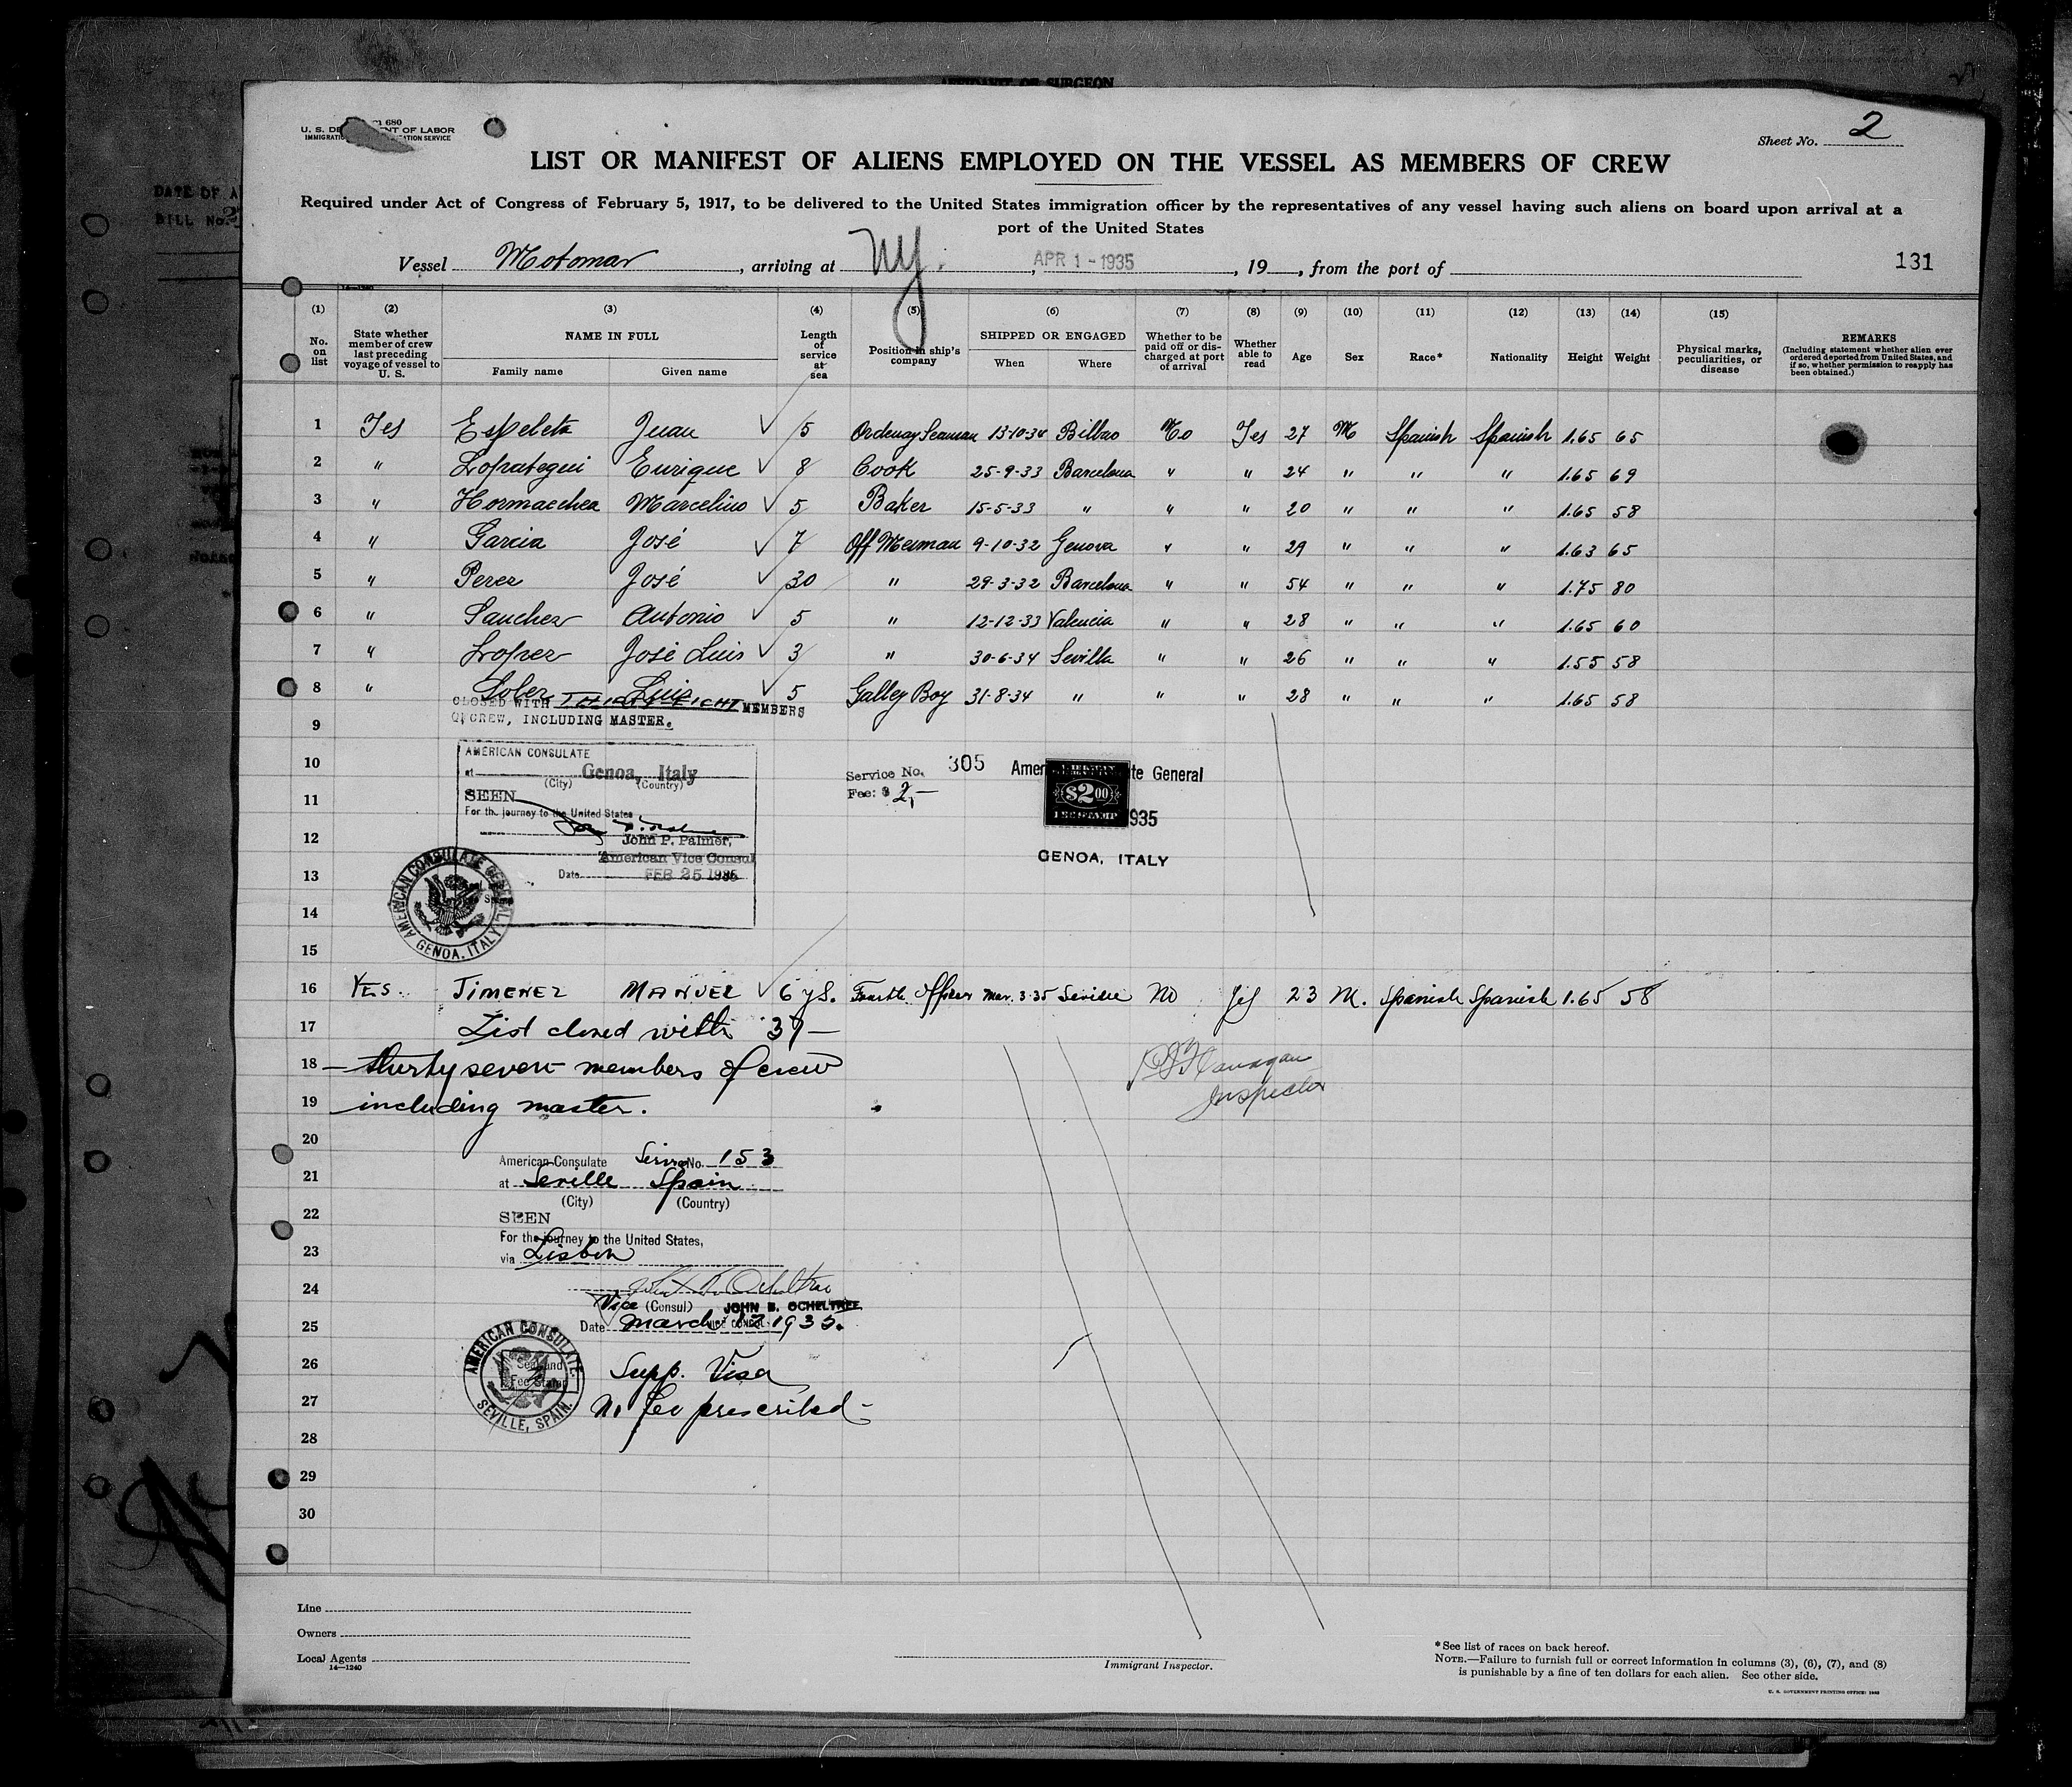 AFFIDAVIT OF SURGEON
DATE OF A
BILL No.
680
U. S. DE NT OF LABOR
IMMIGRATIO ATION SERVICE
Sheet No. 2
LIST OR MANIFEST OF ALIENS EMPLOYED ON THE VESSEL AS MEMBERS OF CREW
Required under Act of Congress of February 5, 1917, to be delivered to the United States immigration officer by the representatives of any vessel having such aliens on board upon arrival at a
port of the United States
Vessel Motomar, arriving at NY., APR 1 - 1935, 19, from the port of 131
14—1240
(1) (2) (3) (4) (5) (6) (7) (8) (9) (10) (11) (12) (13) (14) (15)
No. on list State whether member of crew last preceding voyage of vessel to U. S. NAME IN FULL Family name Given name Length of service at sea Position in ship's company SHIPPED OR ENGAGED When Where Whether to be paid off or discharged at port of arrival Whether able to read Age Sex Race* Nationality Height Weight Physical marks, peculiarities, or disease REMARKS (Including statement whether alien ever ordered deported from United States, and if so, whether permission to reapply has been obtained.)
1 Yes Espeleta Juan 5 Ordenay Seaman 13-10-34 Bilbao No Yes 27 M Spanish Spanish 1.65 65
2 " Lopategui Enrique 8 Cook 25-9-33 Barcelona " " 24 " " " 1.65 69
3 " Hormaechea Marcelino 5 Baker 15-5-33 " " " 20 " " " 1.65 58
4 " Garcia José 7 Off Mesman 9-10-32 Genova " " 29 " " " 1.63 65
5 " Perez José 30 " 29-3-32 Barcelona " " 54 " " " 1.75 80
6 " Sanchez Antonio 5 " 12-12-33 Valencia " " 28 " " " 1.65 60
7 " Lopez José Luis 3 " 30-6-34 Sevilla " " 26 " " " 1.55 58
8 " Sober Luis 5 Galley Boy 31-8-34 " " " 28 " " " 1.65 58
CLOSED WITH THIRTY EIGHT MEMBERS
9 OF CREW, INCLUDING MASTER.
AMERICAN CONSULATE
10 at Genoa, Italy Service No. 305 Amer te General
(City) (Country)
11 SEEN Fee: $ 2,- $2.00
For the journey to the United States 935
12 John P. Palmer,
American Vice Consul GENOA, ITALY
13 Date FEB 25 1935
14 AMERICAN CONSULATE GENERAL, GENOA, ITALY
15
16 YES. JIMENEZ MANUEL 6 ys. Fourth Officer Mar. 3-35 Seville No Yes 23 M. Spanish Spanish 1.65 58
17 List closed with 37—
18 — thirty seven members of crew
19 including master.
R J Flanagan
Inspector
20 American Consulate Service No. 153
21 at Seville Spain
(City) (Country)
22 SEEN
For the journey to the United States,
23 via Lisbon
24
Vice (Consul) JOHN B. OCHELTREE
VICE CONSUL
25 Date March 12 1935.
AMERICAN CONSULATE. SEVILLE, SPAIN.
Seal and
Fee Stamp
26 Supp. Visa
27 No fee prescribed—
28
29
30
Line
Owners
Local Agents
14—1240
Immigrant Inspector.
*See list of races on back hereof.
NOTE.—Failure to furnish full or correct information in columns (3), (6), (7), and (8)
is punishable by a fine of ten dollars for each alien. See other side.
U. S. GOVERNMENT PRINTING OFFICE: